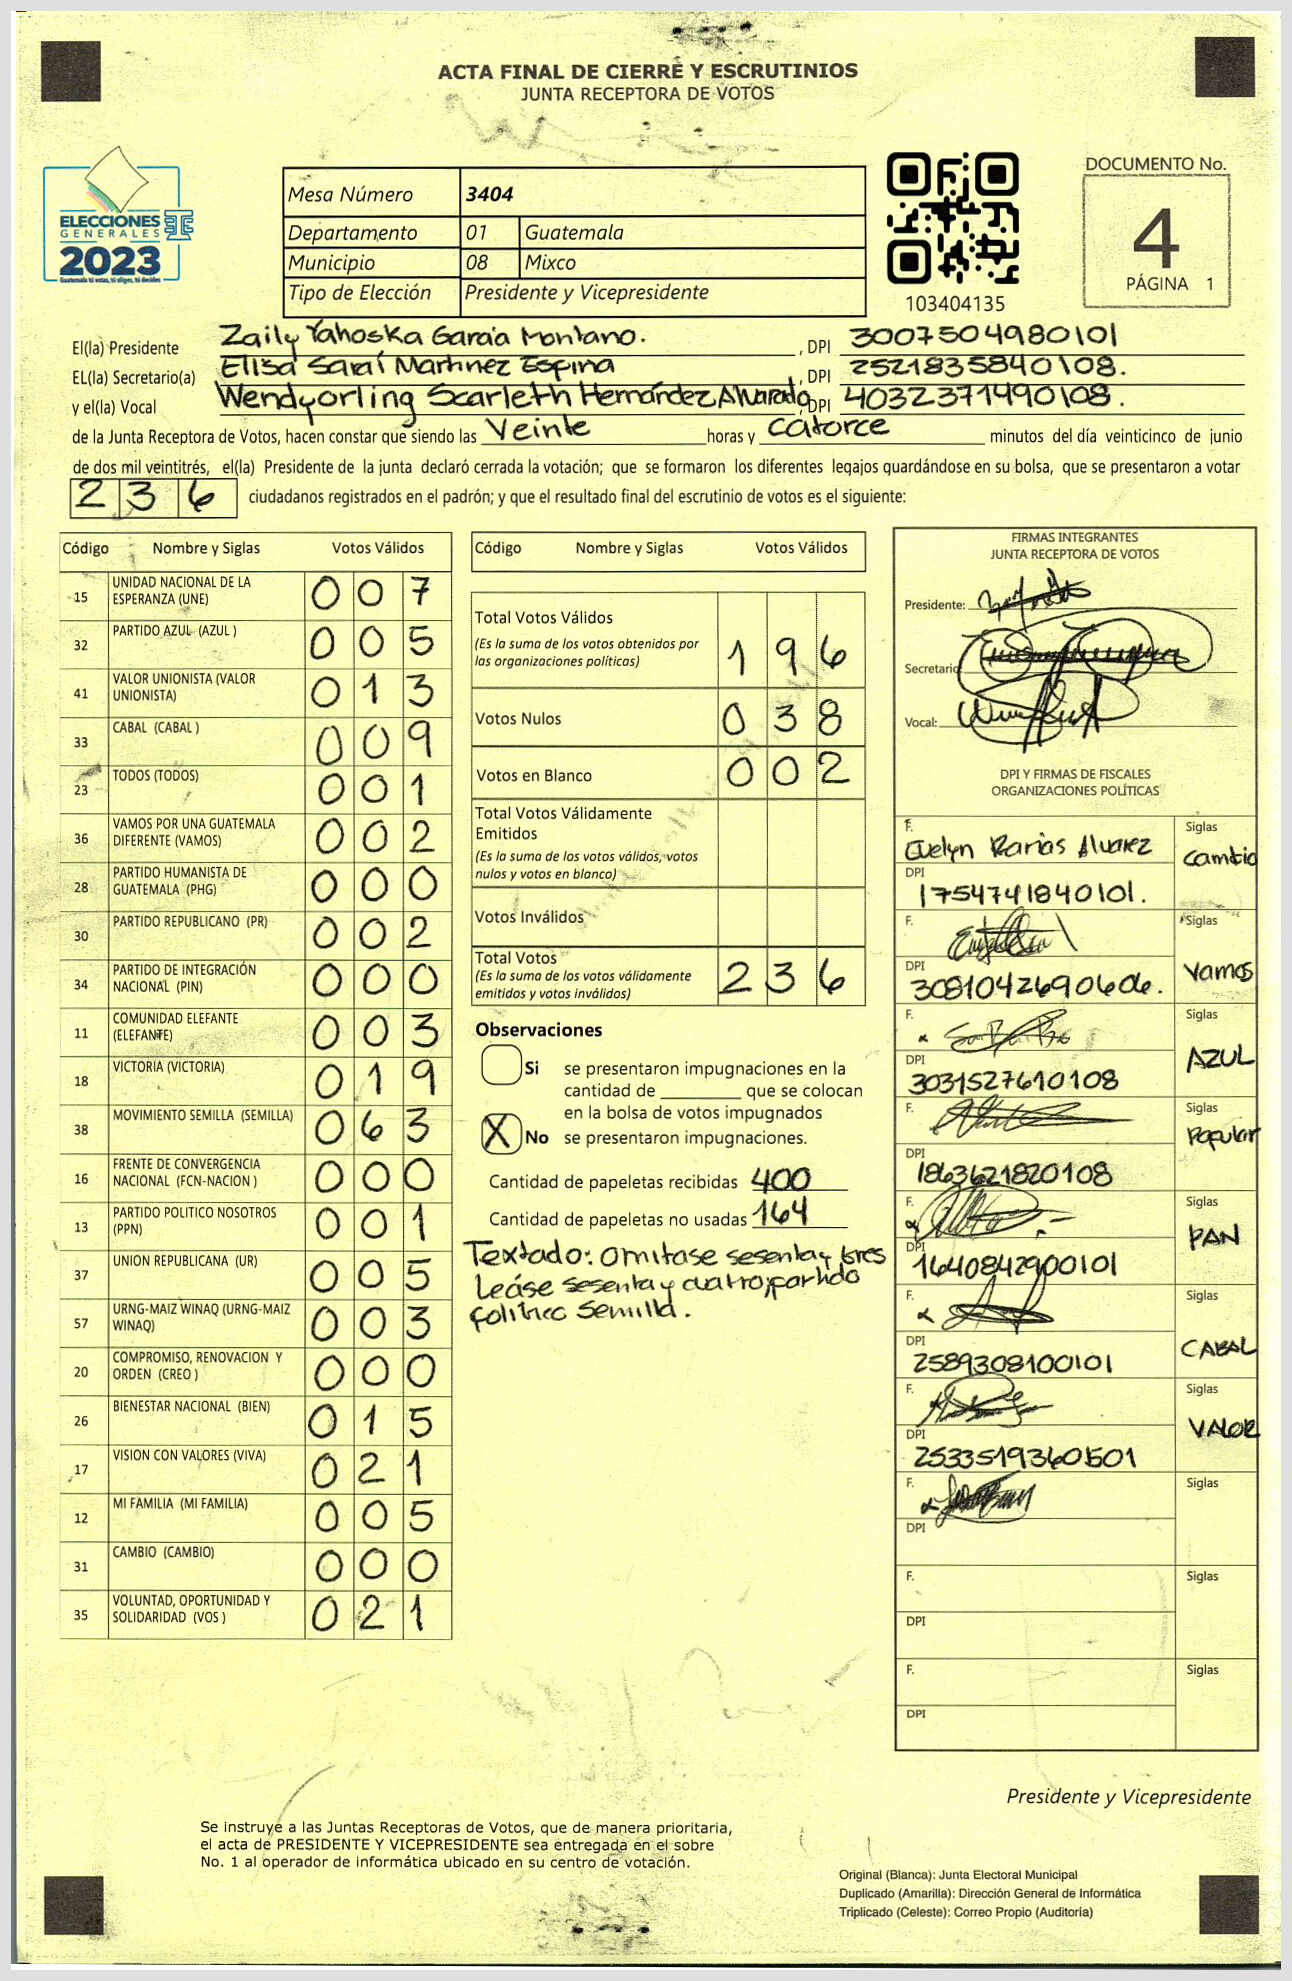 ACTA FINAL DE CIERRE Y ESCRUTINIOS
JUNTA RECEPTORA DE VOTOS
ELECCIONES
GENERALES
2023
Guatemala tú votas, tú eliges, tú decides
Mesa Número 3404
Departamento 01 Guatemala
Municipio 08 Mixco
Tipo de Elección Presidente y Vicepresidente
103404135
DOCUMENTO No.
4
PÁGINA 1
El(la) Presidente Zaily Yahoska García Montano. , DPI 3007504980101
EL(la) Secretario(a) Elisa Saraí Martinez Espina , DPI 2521835840108.
y el(la) Vocal Wendyorling Scarleth Hernández Alvarado , DPI 4032371490108.
de la Junta Receptora de Votos, hacen constar que siendo las Veinte horas y catorce minutos del día veinticinco de junio
de dos mil veintitrés, el(la) Presidente de la junta declaró cerrada la votación; que se formaron los diferentes legajos guardándose en su bolsa, que se presentaron a votar
236 ciudadanos registrados en el padrón; y que el resultado final del escrutinio de votos es el siguiente:
Código Nombre y Siglas Votos Válidos
15 UNIDAD NACIONAL DE LA ESPERANZA (UNE) 007
32 PARTIDO AZUL (AZUL ) 005
41 VALOR UNIONISTA (VALOR UNIONISTA) 013
33 CABAL (CABAL ) 009
23 TODOS (TODOS) 001
36 VAMOS POR UNA GUATEMALA DIFERENTE (VAMOS) 002
28 PARTIDO HUMANISTA DE GUATEMALA (PHG) 000
30 PARTIDO REPUBLICANO (PR) 002
34 PARTIDO DE INTEGRACIÓN NACIONAL (PIN) 000
11 COMUNIDAD ELEFANTE (ELEFANTE) 003
18 VICTORIA (VICTORIA) 019
38 MOVIMIENTO SEMILLA (SEMILLA) 063
16 FRENTE DE CONVERGENCIA NACIONAL (FCN-NACION ) 000
13 PARTIDO POLITICO NOSOTROS (PPN) 001
37 UNION REPUBLICANA (UR) 005
57 URNG-MAIZ WINAQ (URNG-MAIZ WINAQ) 003
20 COMPROMISO, RENOVACION Y ORDEN (CREO ) 000
26 BIENESTAR NACIONAL (BIEN) 015
17 VISION CON VALORES (VIVA) 021
12 MI FAMILIA (MI FAMILIA) 005
31 CAMBIO (CAMBIO) 000
35 VOLUNTAD, OPORTUNIDAD Y SOLIDARIDAD (VOS ) 021
Código Nombre y Siglas Votos Válidos
Total Votos Válidos
(Es la suma de los votos obtenidos por
las organizaciones políticas) 196
Votos Nulos 038
Votos en Blanco 002
Total Votos Válidamente
Emitidos
(Es la suma de los votos válidos, votos
nulos y votos en blanco)
Votos Inválidos
Total Votos
(Es la suma de los votos válidamente
emitidos y votos inválidos) 236
Observaciones
Si se presentaron impugnaciones en la
cantidad de ________ que se colocan
en la bolsa de votos impugnados
X No se presentaron impugnaciones.
Cantidad de papeletas recibidas 400
Cantidad de papeletas no usadas 164
Textado: omitase sesenta y tres
Leáse sesenta y cuatro, partido
político Semilla.
FIRMAS INTEGRANTES
JUNTA RECEPTORA DE VOTOS
Presidente:
Secretario:
Vocal:
DPI Y FIRMAS DE FISCALES
ORGANIZACIONES POLÍTICAS
F. Evelyn Rarias Alvarez Siglas cambio
DPI 1754741840101.
F. Siglas Vamos
DPI 3081042690606.
F. Siglas AZUL
DPI 3031527610108
F. Siglas Popular
DPI 1863621820108
F. Siglas PAN
DPI 1640842900101
F. Siglas CABAL
DPI 2589308100101
F. Siglas VALOR
DPI 2533519360501
F. Siglas
DPI
F. Siglas
DPI
F. Siglas
DPI
Presidente y Vicepresidente
Se instruye a las Juntas Receptoras de Votos, que de manera prioritaria,
el acta de PRESIDENTE Y VICEPRESIDENTE sea entregada en el sobre
No. 1 al operador de informática ubicado en su centro de votación.
Original (Blanca): Junta Electoral Municipal
Duplicado (Amarilla): Dirección General de Informática
Triplicado (Celeste): Correo Propio (Auditoría)